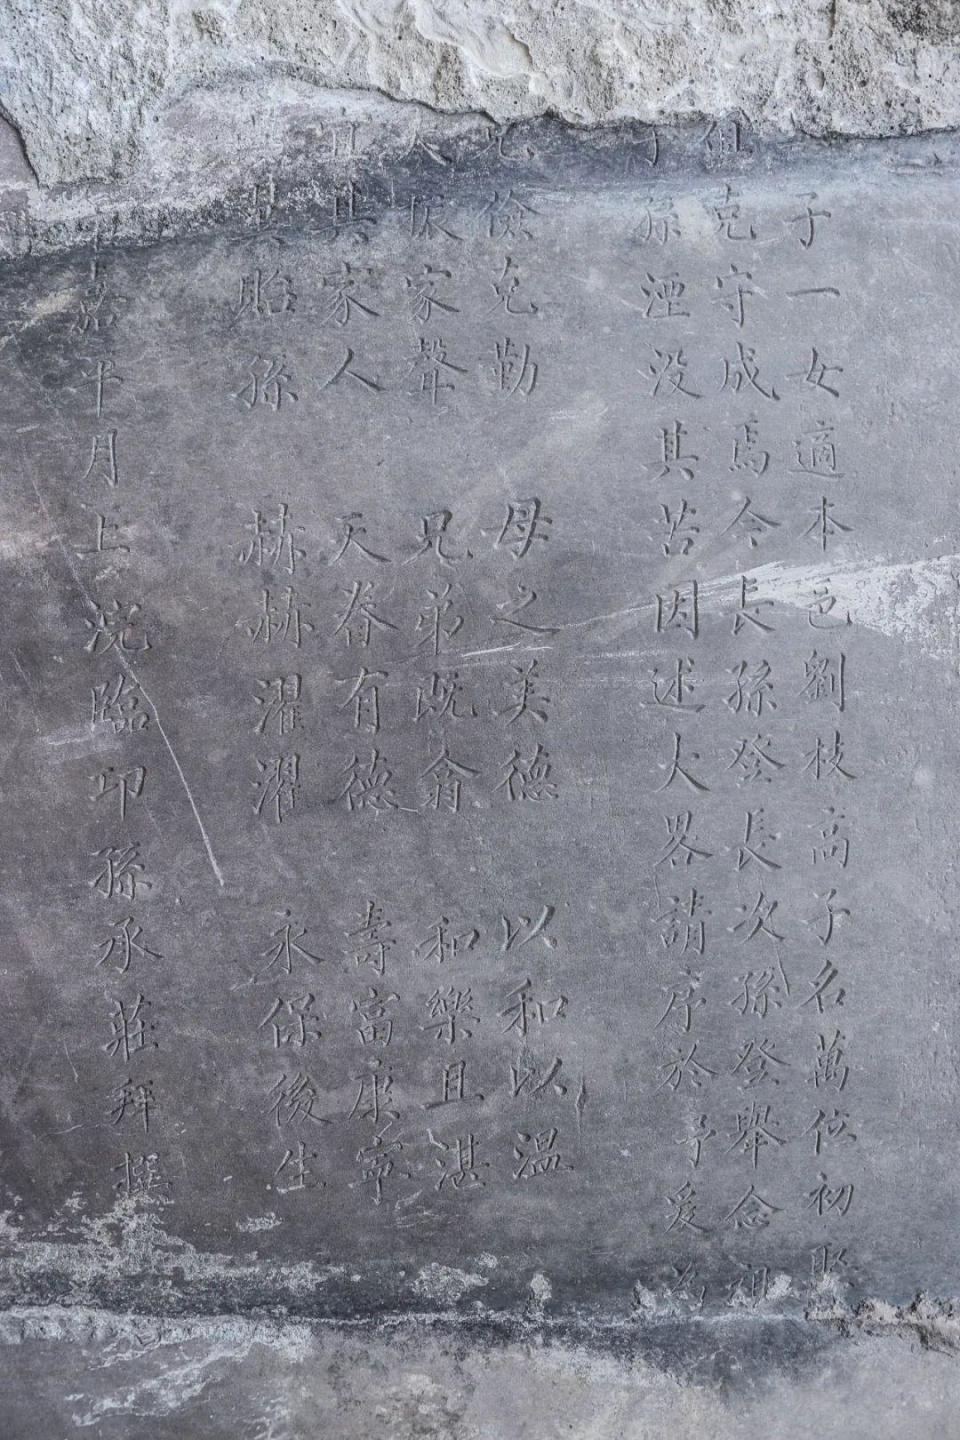 子一女適本邑劉枝高子名萬位初聚
祖克守成焉今長孫登長次孫登舉念祖
子孫湮没其苦因述大畧請序於予爰為
克儉克勤 母之美德 以和以溫
大振家聲 兄弟既翕 和樂且湛
宜其家人 天眷有德 壽富康寧
其貽孫 赫赫濯濯 永保後生
嘉平月上浣臨邛孫承莊拜撰